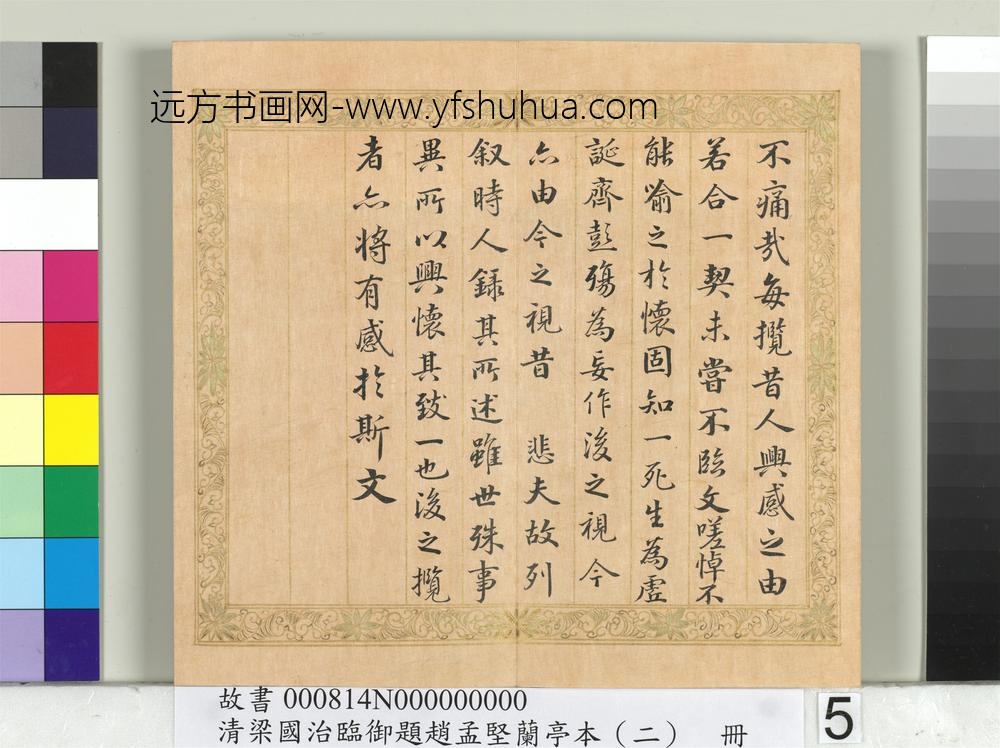 远方书画网-www.yfshuhua.com
不痛哉每攬昔人興感之由
若合一契未嘗不臨文嗟悼不
能喻之於懷固知一死生為虛
誕齊彭殤為妄作後之視今
亦由今之視昔 悲夫故列
叙時人錄其所述雖世殊事
異所以興懷其致一也後之攬
者亦將有感於斯文
故書 000814N000000000
清梁國治臨御題趙孟堅蘭亭本（二） 冊
5